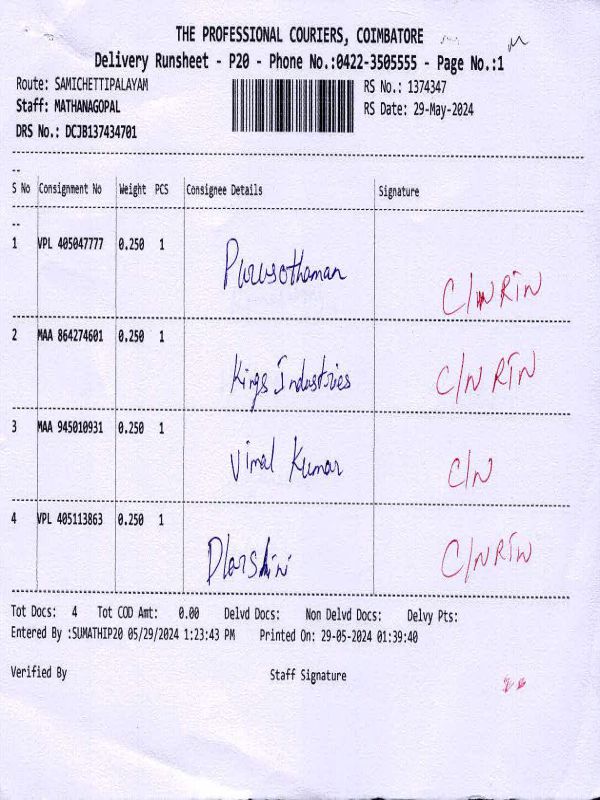 THE PROFESSIONAL COURIERS, COIMBATORE
Delivery Runsheet - P20 - Phone No.:0422-3505555 - Page No.:1
Route: SAMICHETTIPALAYAM RS No.: 1374347
Staff: MATHANAGOPAL RS Date: 29-May-2024
DRS No.: DCJB137434701
S No Consignment No Weight PCS Consignee Details Signature
1 VPL 405047777 0.250 1 Purusothaman C/N RTN
2 MAA 864274601 0.250 1 Kings Industries C/N RTN
3 MAA 945010931 0.250 1 Vimal Kumar C/N
4 VPL 405113863 0.250 1 Dharshini C/N RTN
Tot Docs: 4 Tot COD Amt: 0.00 Delvd Docs: Non Delvd Docs: Delvy Pts:
Entered By :SUMATHIP20 05/29/2024 1:23:43 PM Printed On: 29-05-2024 01:39:40
Verified By Staff Signature